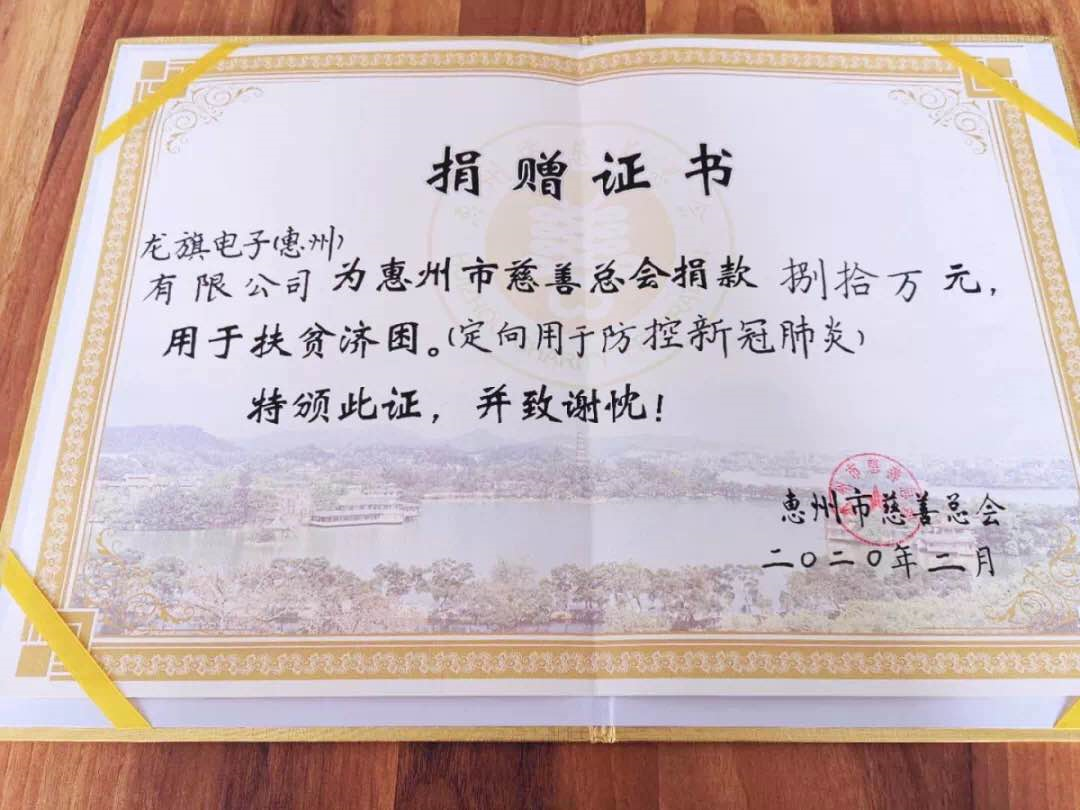 捐赠证书
龙旗电子(惠州)
有限公司为惠州市慈善总会捐款 捌拾万 元，
用于扶贫济困。(定向用于防控新冠肺炎)
特颁此证，并致谢忱！
惠州市慈善总会
二〇二〇年二月